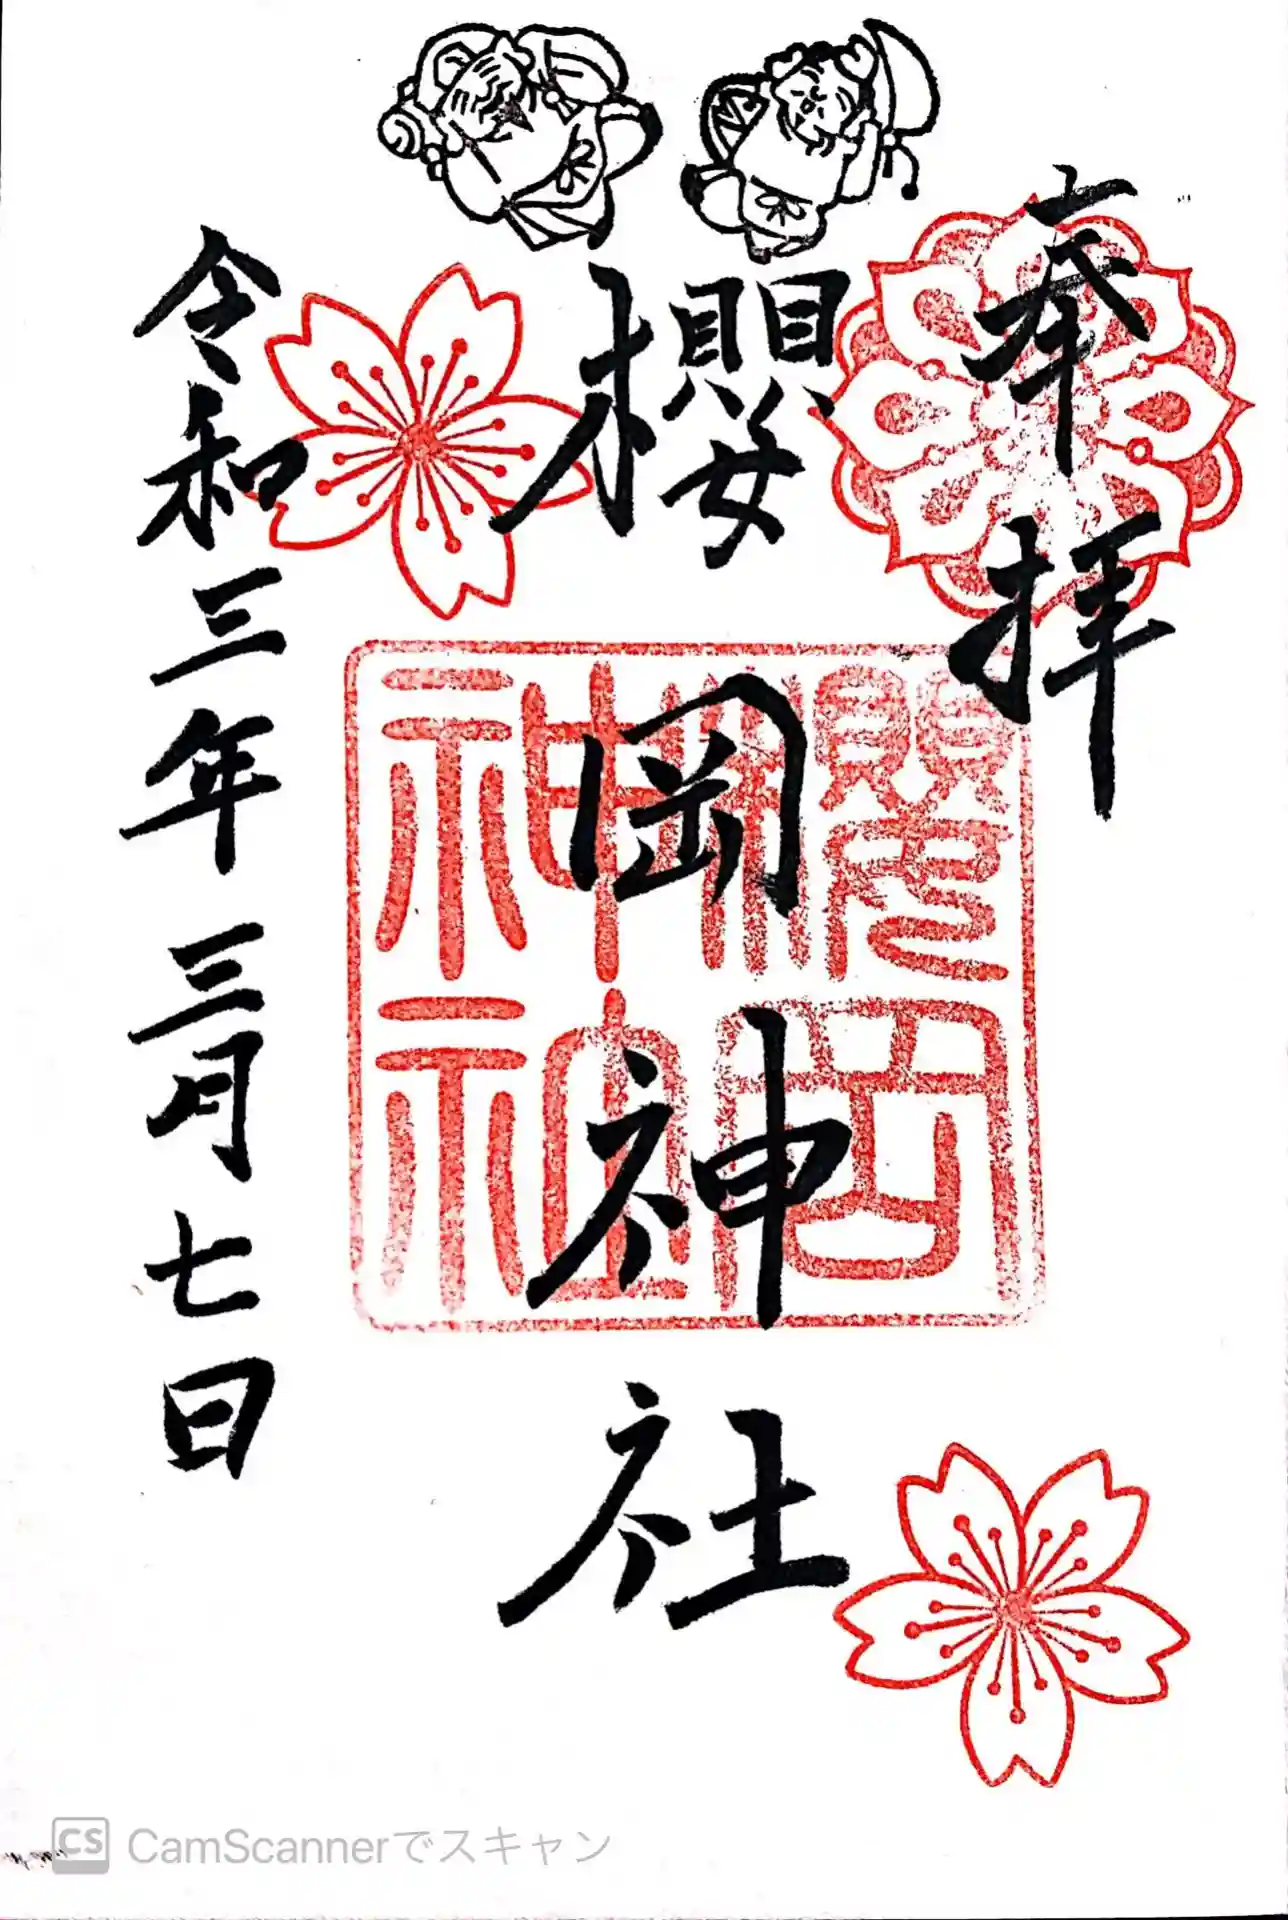 奉拝
櫻岡神社
櫻岡
神社
令和三年三月七日
CS CamScannerでスキャン